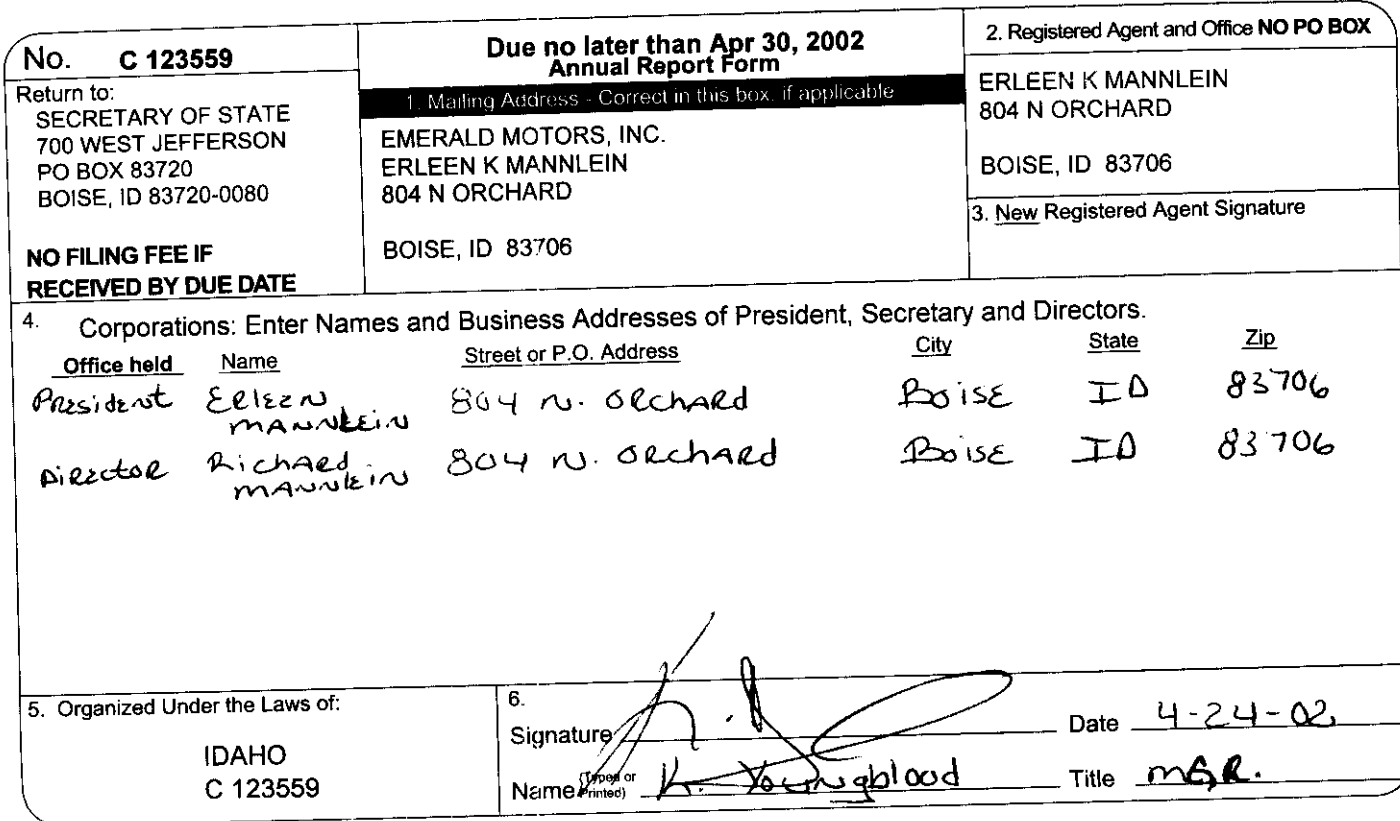 No. C 123559
Return to:
SECRETARY OF STATE
700 WEST JEFFERSON
PO BOX 83720
BOISE, ID 83720-0080
NO FILING FEE IF
RECEIVED BY DUE DATE
Due no later than Apr 30, 2002
Annual Report Form
1. Mailing Address - Correct in this box, if applicable
EMERALD MOTORS, INC.
ERLEEN K MANNLEIN
804 N ORCHARD
BOISE, ID 83706
2. Registered Agent and Office NO PO BOX
ERLEEN K MANNLEIN
804 N ORCHARD
BOISE, ID 83706
3. New Registered Agent Signature
4. Corporations: Enter Names and Business Addresses of President, Secretary and Directors.
Office held Name Street or P.O. Address City State Zip
President Erleen 804 N. Orchard Boise ID 83706
Mannlein
Director Richard 804 N. Orchard Boise ID 83706
Mannlein
5. Organized Under the Laws of:
IDAHO
C 123559
6.
Signature Date 4-24-02
Name (Typed or Printed) K. Youngblood Title MGR.